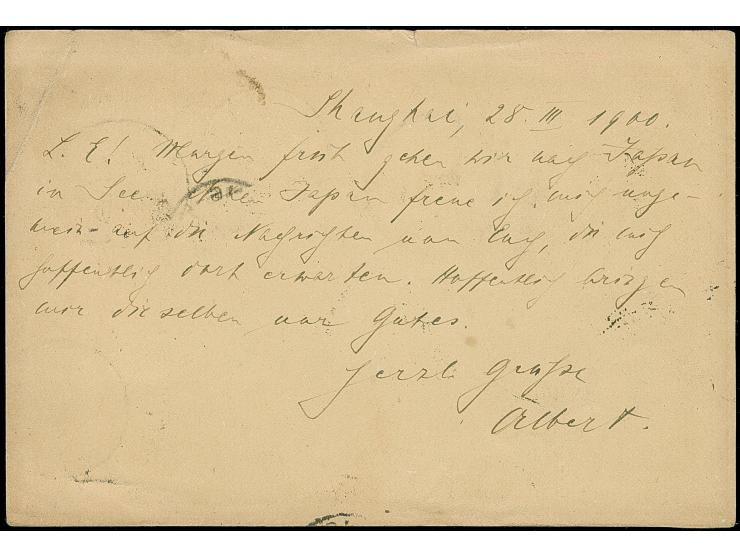 Shanghai, 28. III 1900.
L. E! Morgen früh gehen wir nach Japan
in See. Japan freue ich mich unge-
mein auf die Nachrichten von Euch, die mich
hoffentlich dort erwarten. Hoffentlich bringen
mir dieselben nur Gutes.
Herzl. Grüße
Albert.